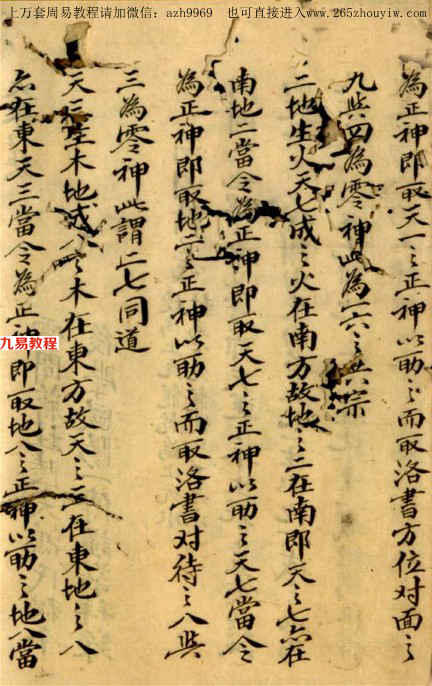 上万套周易教程请加微信：azh9969 也可直接进入www.265zhouyiw.com
九易教程
為正神即取天一之正神以助之而取洛書方位对面之
九與四為零神此為一六之共宗
二地生火天七成之火在南方故地之二在南即天之七亦在
南地二當令為正神即取天七之正神以助之天七當令
為正神即取地二之正神以助之而取洛書对待之八與
三為零神此謂二七同道
天三生木地成八之木在東方故天之三在東地之八
亦在東天三當令為正神即取地八之正神以助之地八當